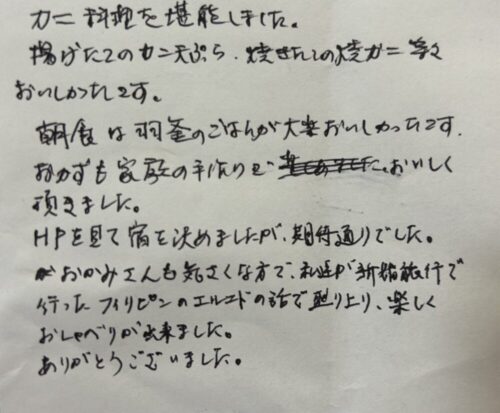 カニ料理を堪能しました。
揚げたてのカニ天ぷら、焼きたての焼ガニ等々
おいしかったです。
朝食は羽釜のごはんが大変おいしかったです.
おかずも家族の手作りで おいしく
頂きました。
HPを見て宿を決めましたが、期待通りでした。
おかみさんも気さくな方で、私達が新婚旅行で
行ったフィリピンのエルニドの話で盛り上り、楽しく
おしゃべりが出来ました。
ありがとうございました。